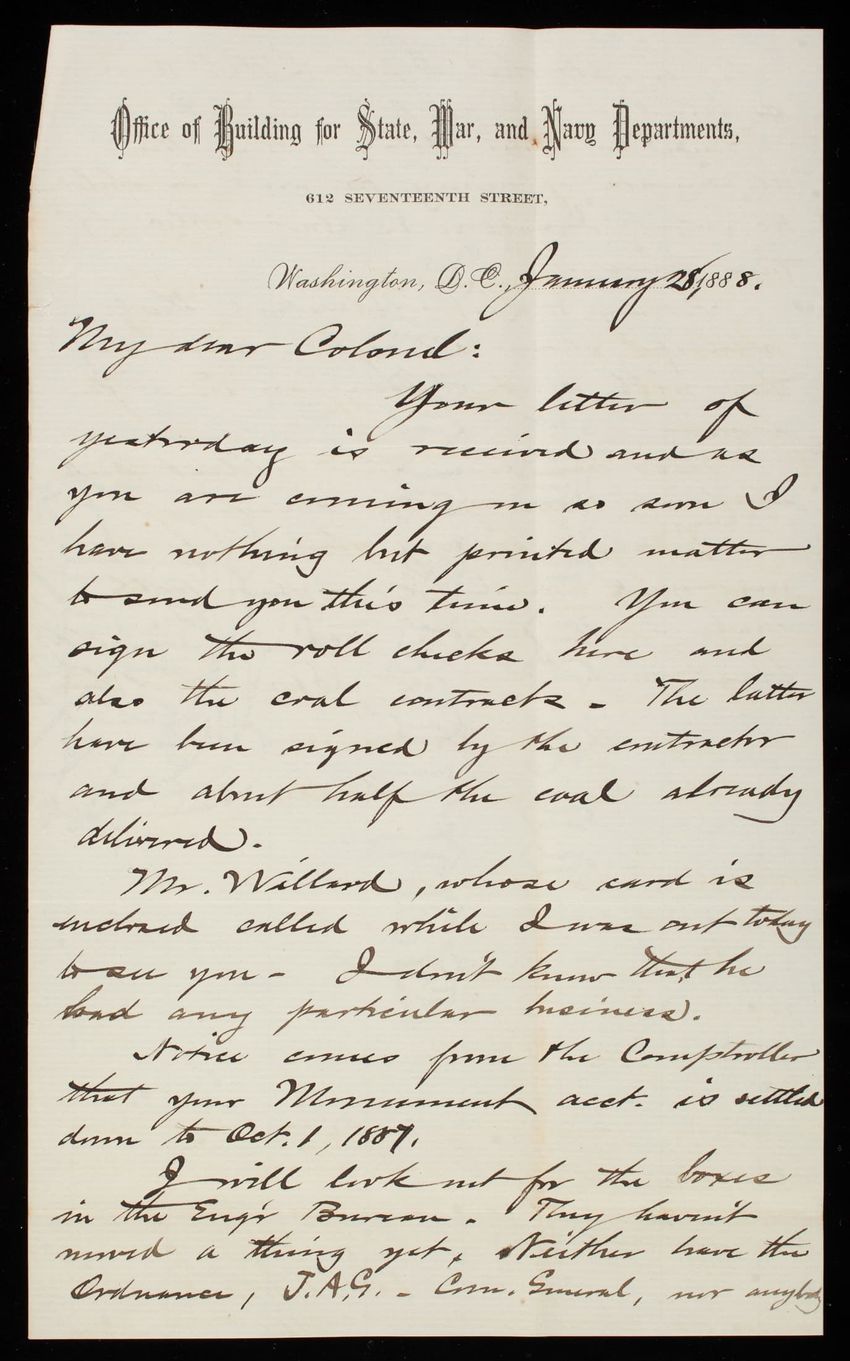 Office of Building for State, War, and Navy Departments,
612 SEVENTEENTH STREET,
Washington, D. C., January 28, 1888.
My dear Colonel:
Your letter of
yesterday is received and as
you are coming on so soon I
have nothing but printed matter
to send you this time. You can
sign the roll checks here and
also the coal contracts - The latter
have been signed by the contractor
and about half the coal already
delivered.
Mr. Willard, whose card is
enclosed called while I was out today
to see you - I don't know that he
had any particular business.
Notice comes from the Comptroller
that your Monument acct. is settled
down to Oct. 1, 1887.
I will look out for the boxes
in the Eng'r Bureau. They haven't
moved a thing yet, Neither have the
Ordnance, J.A.G. - Com. General, nor anybody